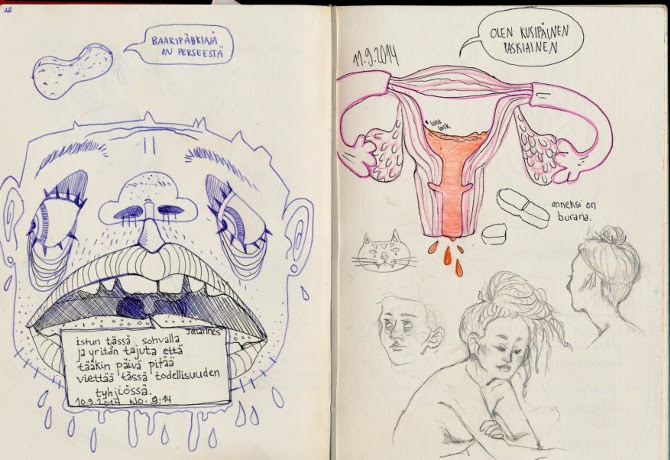 28
BAARIPÄHKINÄ
ON PERSEESTÄ
Johannes
istun tässä sohvalla
ja yritän tajuta että
tääkin päivä pitää
viettää tässä todellisuuden
tyhjiössä.
10.9.2014 klo. 9:14
11.9.2014
OLEN KUSIPÄINEN
PASKIAINEN
anneksi on
burana.